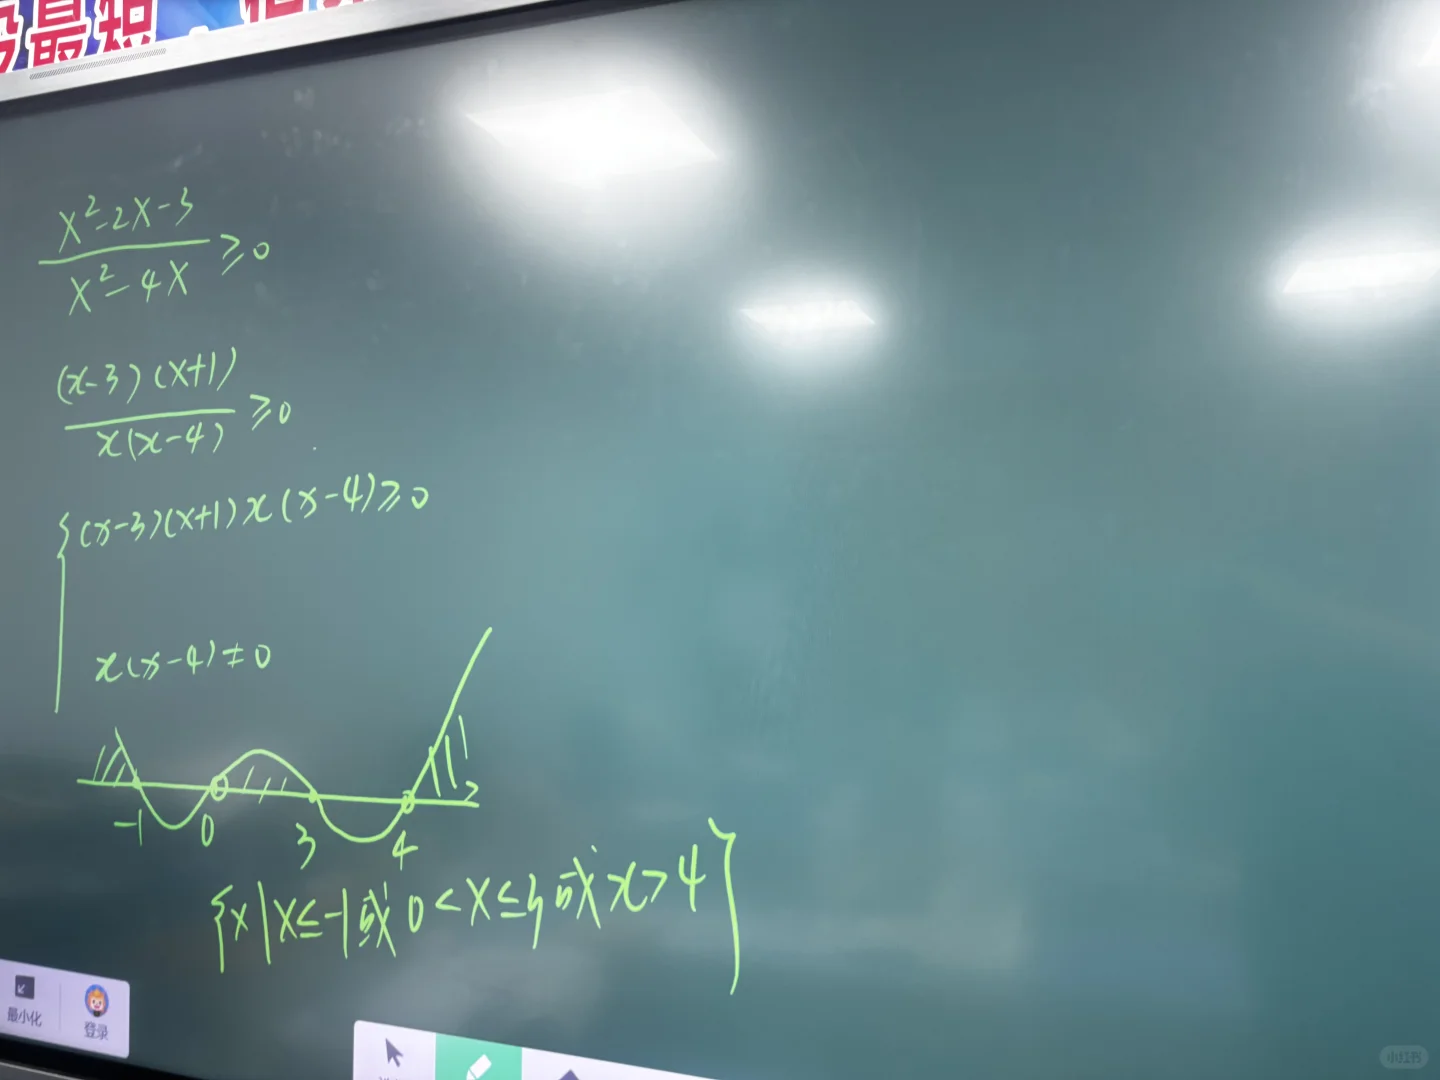 最短
x²-2x-3
x²-4x
≥0
(x-3)(x+1)
x(x-4)
≥0
{(x-3)(x+1)x(x-4)≥0
x(x-4)≠0
-1 0 3 4
{x|x≤-1或0<x≤3或x>4}
最小化
登录
小红书